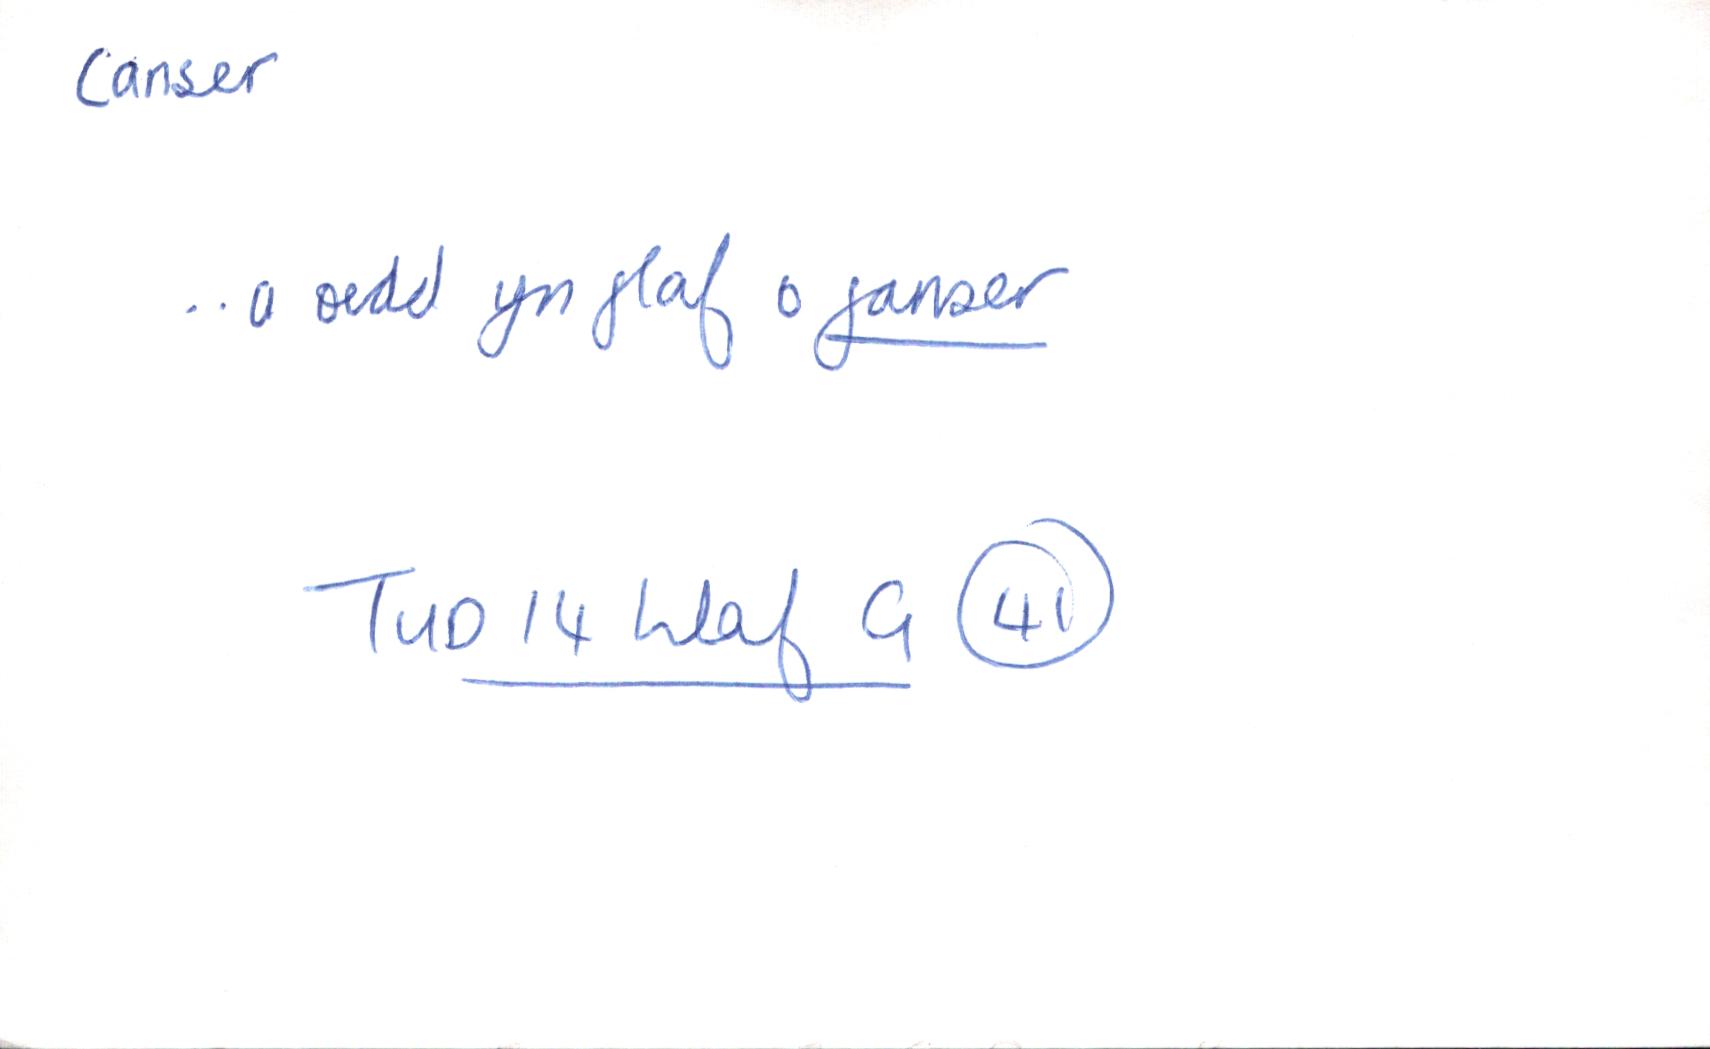 Canser
..a oedd yn glaf o ganser
TUD 14 G 41